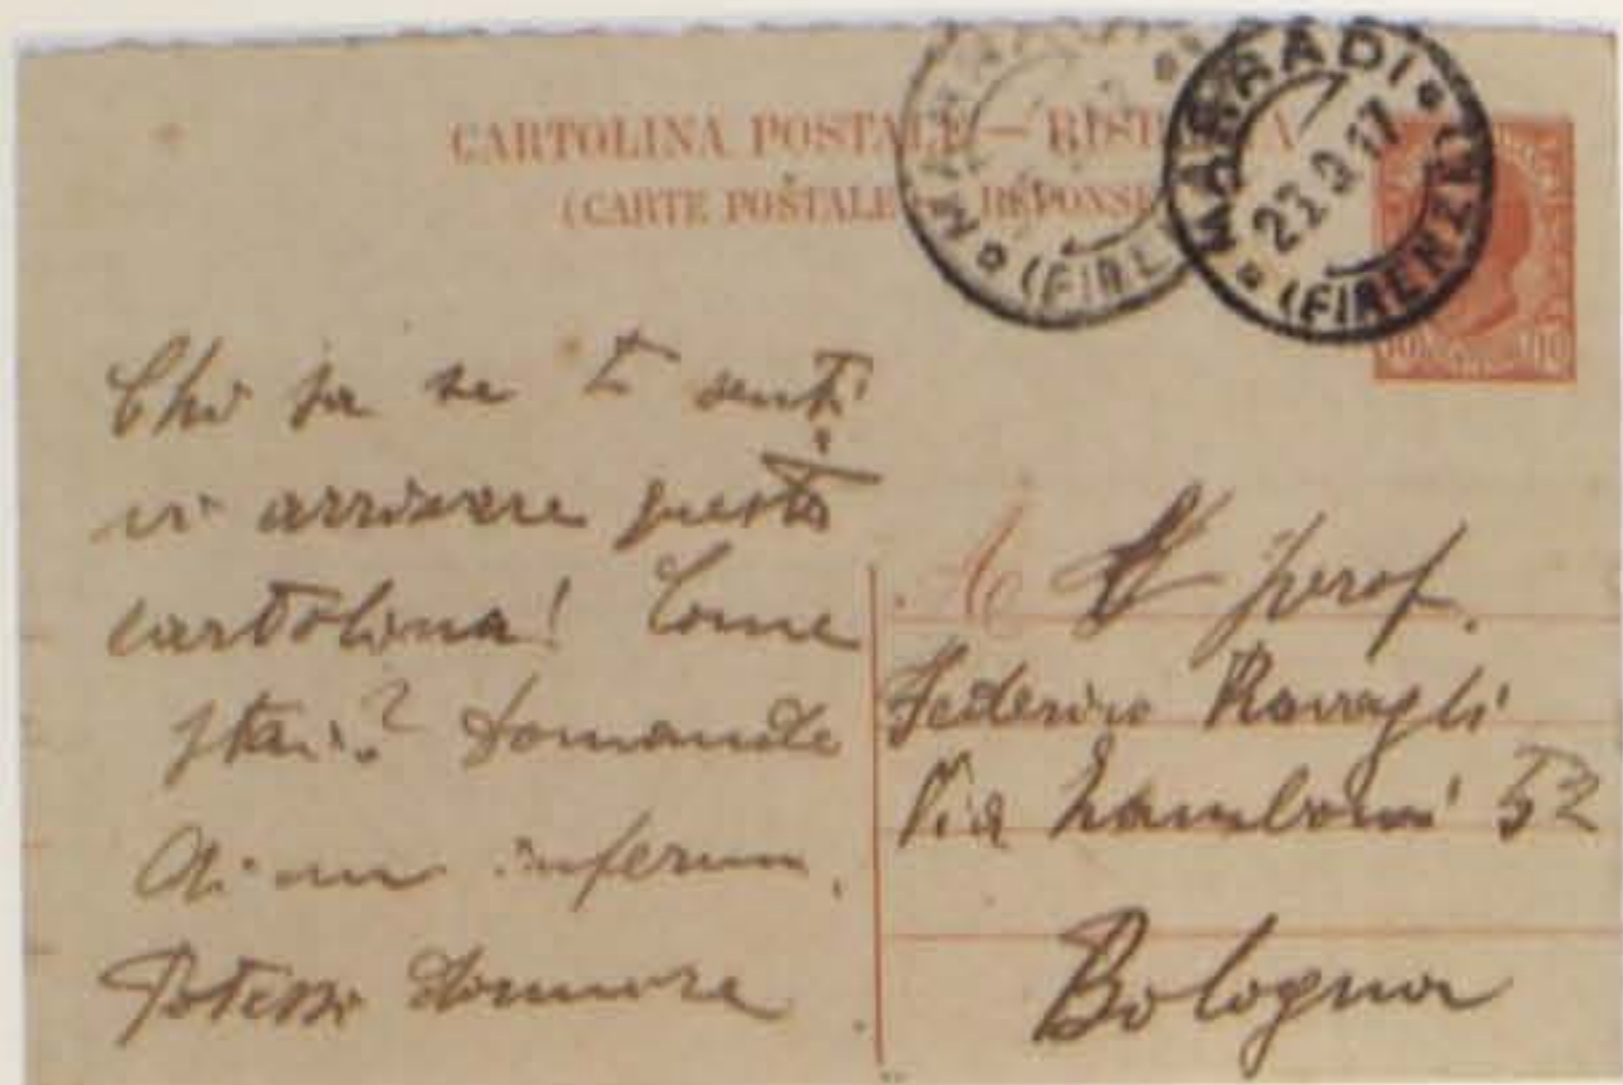 CARTOLINA POSTALE — RISPOSTA
(CARTE POSTALE — RÉPONSE)
MARRADI
(FIRENZE)
23.9.17
Chi sa se ti senti
vi arrivare questa
cartolina! Come
stai? Domande
di un infermo.
Potessi dormire
Al prof.
Federico Ravagli
Via Zamboni 52
Bologna